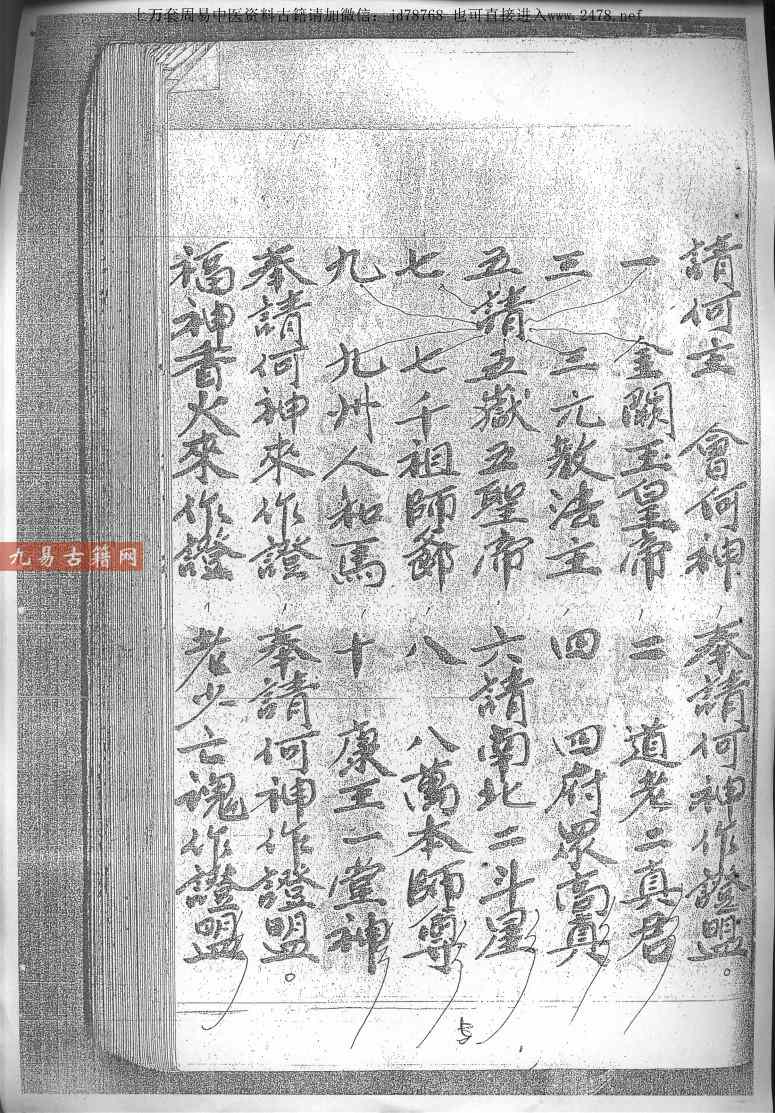 上万套周易中医资料古籍请加微信：jd78768 也可直接进入www.2478.net
請何主 會何神 奉請何神作證盟。
一 金闕玉皇帝 二 道老二真君
三 三元教法主 四 四府眾高真
五請五嶽五聖帝 六請南北二斗星
七 七千祖師爺 八 八萬本師尊
九 九州人和馬 十 康王一堂神
奉請何神來作證 奉請何神作證盟。
福神香火來作證 老少亡魂作證盟
九易古籍网